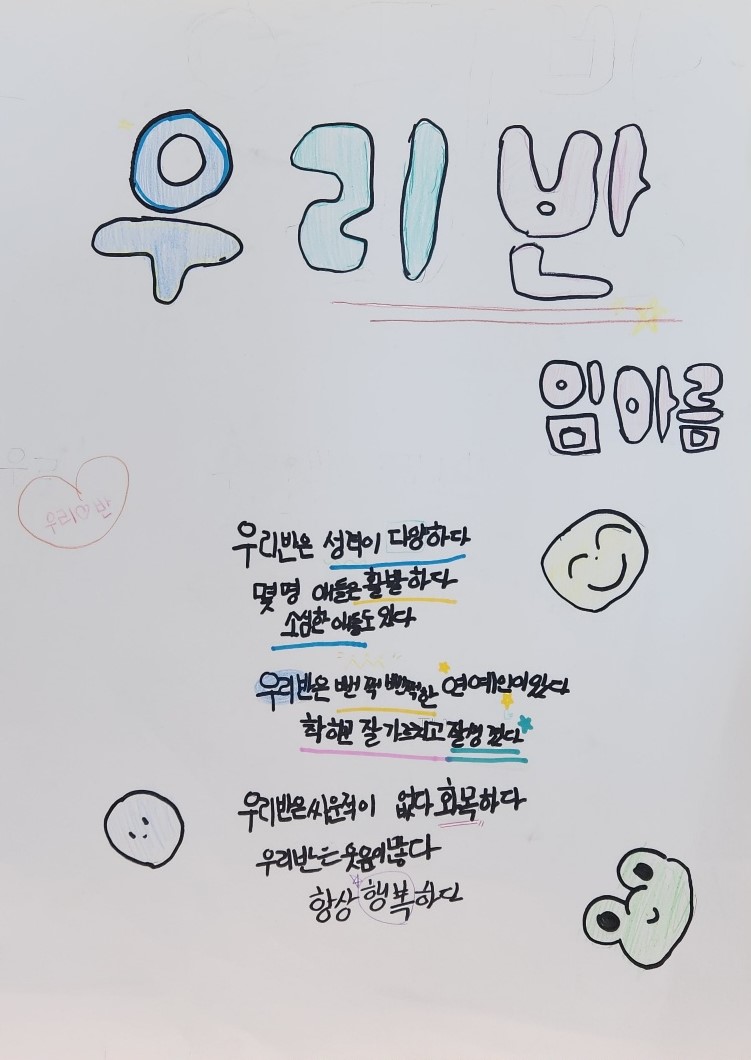 우리반
임아름
우리♡반
우리반은 성격이 다양하다
몇명 애들은 활발하다
소심한 애들도 있다
우리반은 빤짝 빤짝한 연예인이 있다
잘 가르치고 잘생겼다
우리반은 싸운적이 없다 화목하다
우리반은 웃음이 많다
항상 행복하다